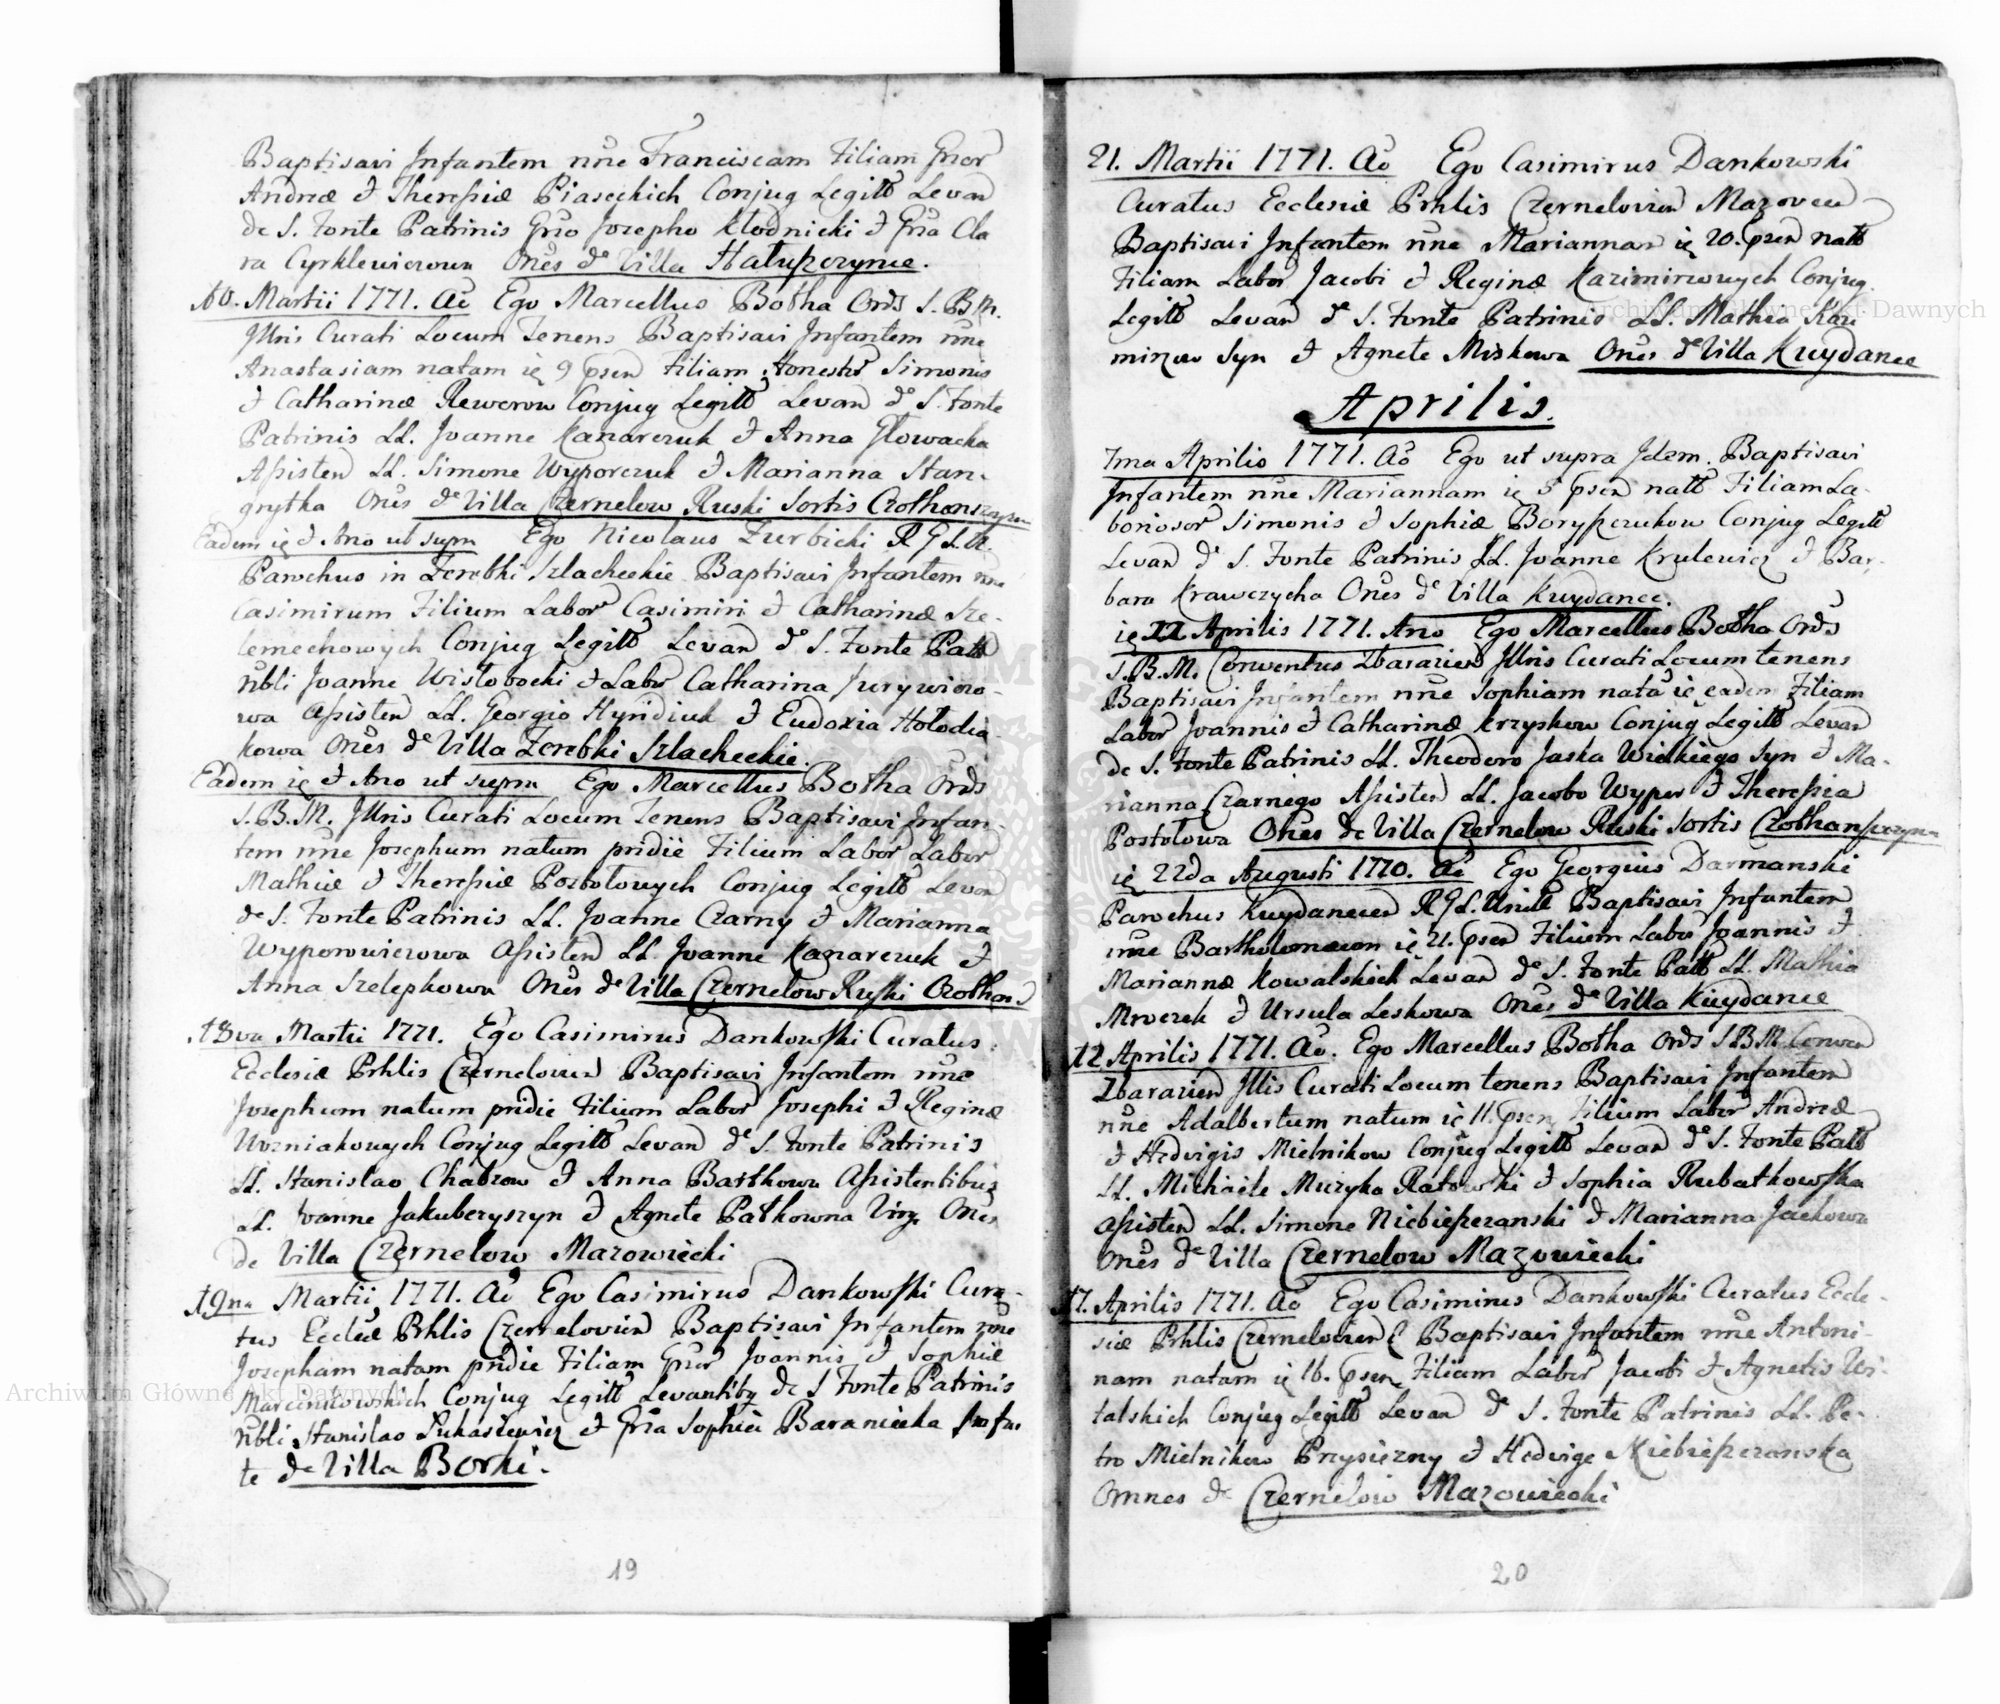 Baptisavi Infantem nne Franciscam Filiam Gnor
Andreæ & Theresiæ Piaseckich Conjug Legitt Levan
de S. Fonte Patrinis Gnso Josepho Kłodnicki & Gnsa Cla
ra Cyrklewiczowa Ones de Villa Hałuszczynce.
10. Martii 1771. Ao Ego Marcellus Botha Ords S. B. M.
Illris Curati Locum Tenens Baptisavi Infantem nne
Anastasiam natam ię 9 psen Filiam Honestor Simonis
& Catharinæ Rewerow Conjug Legitt Levan de S. Fonte
Patrinis LL. Joanne Kanarczuk & Anna Głowacka
Assisten LL. Simone Wyporczuk & Marianna Stan-
grytka Ones de Villa Czernelow Ruski Sortis Czothans
Eadem ię & Ano ut supra Ego Nicolaus Zurbicki R G L U.
Parochus in Zerebki Szlacheckie Baptisavi Infantem nne
Casimirum Filium Labor Casimiri & Catharinæ Sze-
lemechowych Conjug Legitt Levan de S. Fonte Patt
Nbli Joanne Wisłobocki & Labor Catharina Jurywiczo-
wa Assisten LL. Georgio Hyndiuk & Eudoxia Hołodia
kowa Ones de Villa Zerebki Szlacheckie.
Eadem ię & Ano ut supra Ego Marcellus Botha Ords
S. B. M. Illris Curati Locum Tenens Baptisavi Infan-
tem nne Josephum natum pridie Filium Labor Labor
Mathiæ & Theresiæ Postołowych Conjug Legitt Levan
de S. Fonte Patrinis LL. Joanne Czarny & Marianna
Wyporowiczowa Assisten LL. Joanne Kanarczuk &
Anna Szelepkowa Ones de Villa Czernelow Ruski Czothans
18va Martii 1771. Ego Casimirus Dankowski Curatus
Ecclesiæ Prhlis Czernelovien Baptisavi Infantem nne
Josephum natum pridie Filium Labor Josephi & Reginæ
Wozniakowych Conjug Legitt Levan de S. Fonte Patrinis
LL. Stanislao Chabrow & Anna Barthowa Assistentibus
LL. Joanne Jakubczyszyn & Agnete Patkowna Virg. Ones
de Villa Czernelow Mazowiecki
19na Martii 1771. Ao Ego Casimirus Dankowski Cura-
tus Eccleæ Prhlis Czernelovien Baptisavi Infantem nne
Josepham natam pridie Filiam Gnor Joannis & Sophiæ
Marcinkowskich Conjug Legitt Levantibg de S Fonte Patrinis
Nbli Stanislao Łukasiewicz & Gnsa Sophia Baraniecka
te de Villa Borki.
19
21. Martii 1771. Ao Ego Casimirus Dankowski
Curatus Ecclesiæ Prhlis Czernelovien Mazovien
Baptisavi Infantem nne Mariannam ię 20. psen natt
Filiam Labor Jacobi & Reginæ Kazimirowych Conjug
Legitt Levan de S. Fonte Patrinis LL. Mathia Kazi
mirow Syn & Agnete Miskowa Ones de Villa Kuydance
Aprilis.
7ma Aprilis 1771. Ao Ego ut supra Idem. Baptisavi
Infantem nne Mariannam ię 5 psen natt Filiam La-
boriosor Simonis & Sophiæ Boryszczukow Conjug Legitt
Levan de S. Fonte Patrinis LL. Joanne Krulewicz & Bar-
bara Krawczycha Ones de Villa Kuydance.
ię 11 Aprilis 1771. Ano Ego Marcellus Botha Ords
S. B. M. Conventus Zbarazien Illris Curati Locum tenens
Baptisavi Infantem nne Sophiam nata ię eadem Filiam
Labor Joannis & Catharinæ Krzyskow Conjug Legitt Levan
de S. Fonte Patrinis LL. Theodoro Jaska Wielkiego Syn & Ma-
rianna Czarnego Assisten LL. Jacobo Wypor & Theresia
Postołowa Ones de Villa Czernelow Ruski Sortis Czothanszczyzn
ię 22da Augusti 1770. Ao Ego Georgius Darmanski
Parochus Kuydanecen R G L. Unitt Baptisavi Infantem
nne Bartholomæum ię 21. psen Filium Labor Joannis &
Mariannæ Kowalskich Levan de S. Fonte Patt LL. Mathia
Mroczek & Ursula Leskowa Ones de Villa Kuydance
12 Aprilis 1771. Ao. Ego Marcellus Botha Ords S B M Conven
Zbarazien Illis Curati Locum tenens Baptisavi Infantem
nne Adalbertum natum ię 11. psen Filium Labor Andreæ
& Hedvigis Mielnikow Conjug Legitt Levan de S. Fonte Patt
LL. Michaele Muzyka Ratowski & Sophia Rubatkowska
Assisten LL. Simone Niebieszczanski & Marianna Jackowa
Ones de Villa Czernelow Mazowiecki
17. Aprilis 1771. Ao Ego Casimirus Dankowski Curatus Eccle-
siæ Prhlis Czernelovien Baptisavi Infantem nne Antoni-
nam natam ię 16. psen Filiam Labor Jacobi & Agnetis Wi-
talskich Conjug Legitt Levan de S. Fonte Patrinis LL. Pe-
tro Mielnikow Przysięzny & Hedvige Niebieszczanska
Omnes de Czernelow Mazowiecki
20
Archiwum Główne Akt Dawnych
Archiwum Główne Akt Dawnych